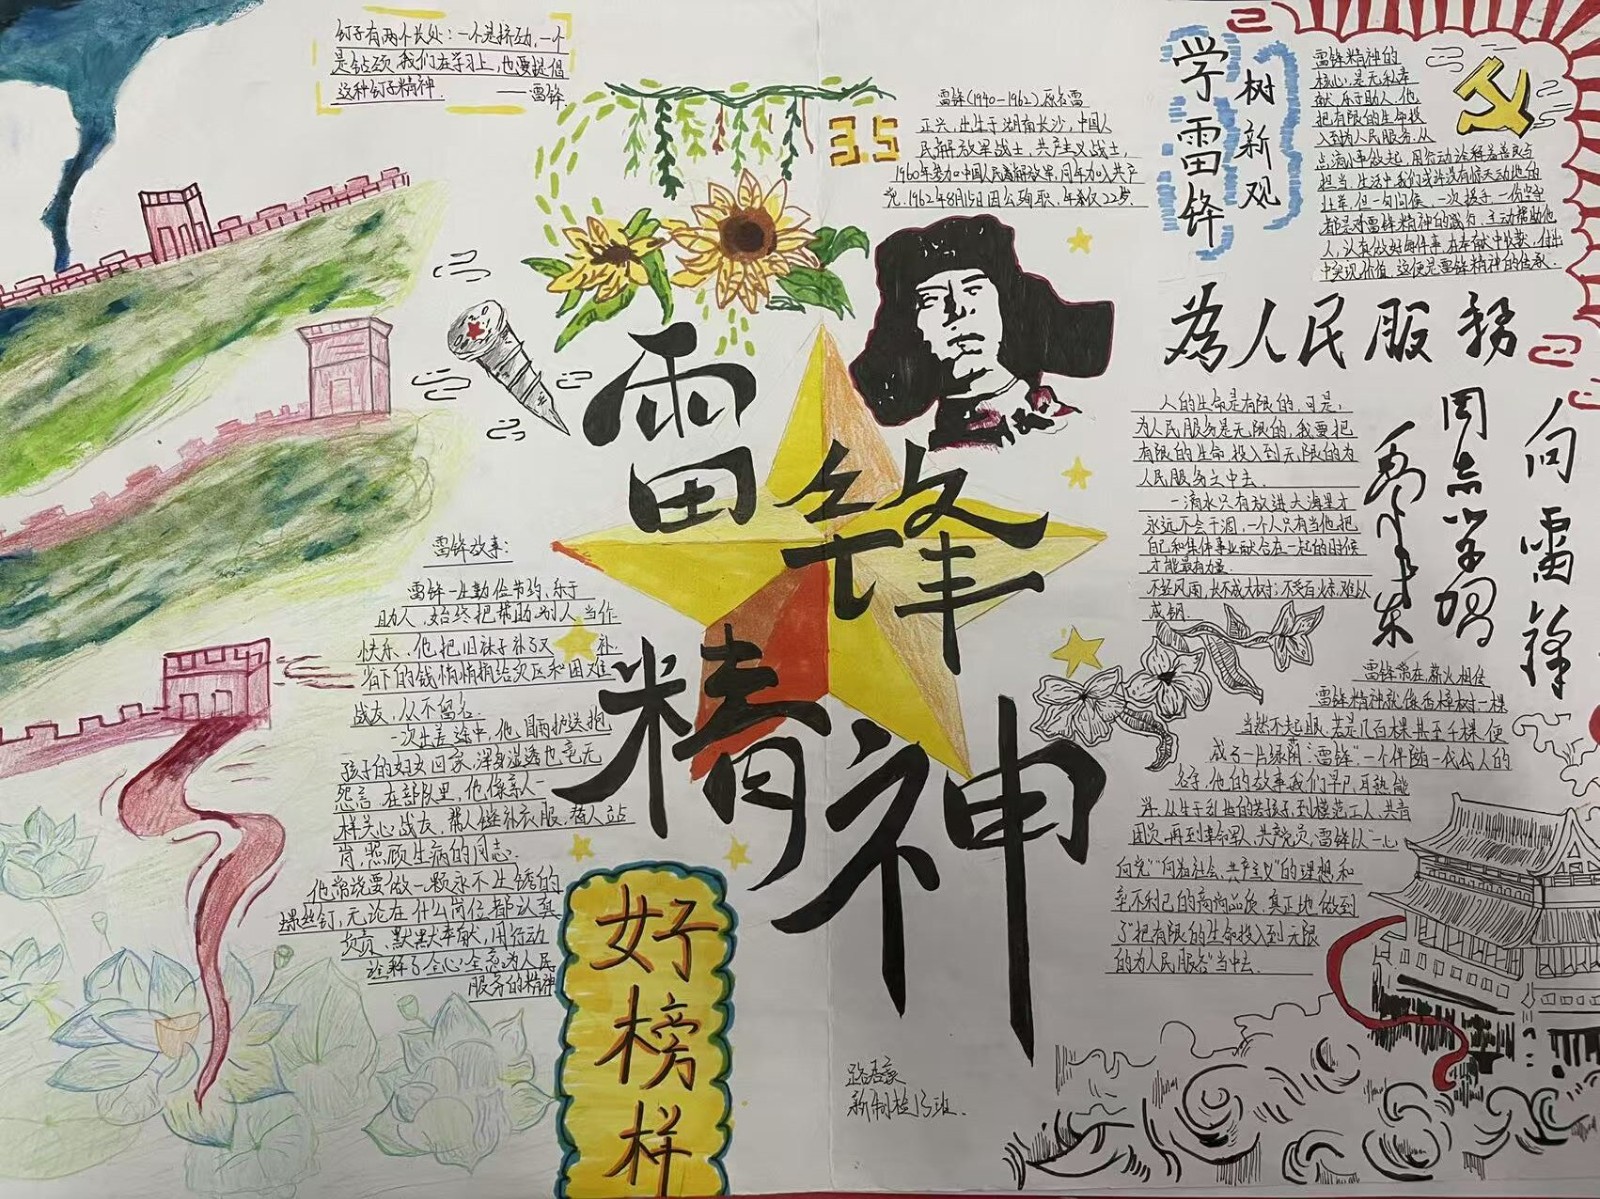 钉子有两个长处：一个是挤劲，一个
是钻劲，我们在学习上，也要提倡
这种钉子精神。
——雷锋
3.5
雷锋(1940-1962)原名雷
正兴，出生于湖南长沙，中国人
民解放军战士，共产主义战士，
1960年参加中国人民解放军，同年加入共产
党。1962年8月15日因公殉职，年仅22岁。
学雷锋
树新观
雷锋精神的
核心，是无私奉
献、乐于助人，他
把有限的生命投
入到为人民服务，从
点滴小事做起，用行动诠释着善良与
担当，生活中我们或许没有惊天动地的
壮举，但一句问候、一次援手、一份坚守
都是对雷锋精神的践行，主动帮助他
人，认真做好每件事，在奉献中收获，付出
中实现价值，这便是雷锋精神的传承。
为人民服务
向雷锋
周恩
毛泽东
雷锋精神
好榜样
人的生命是有限的，可是，
为人民服务是无限的，我要把
有限的生命，投入到无限的为
人民服务之中去。
一滴水只有放进大海里才
永远不会干涸，一个人只有当他把
自己和集体事业融合在一起的时候
才能最有力量。
不经风雨，长不成大树；不受百炼，难以
成钢。
雷锋故事：
雷锋一生勤俭节约、乐于
助人，始终把帮助别人当作
快乐。他把旧袜子补了又补，
省下的钱悄悄捐给灾区和困难
战友，从不留名。
一次出差途中，他冒雨护送抱
孩子的妇女回家，浑身湿透也毫无
怨言。在部队里，他像亲人一
样关心战友，帮人缝补衣服，替人站
岗，照顾生病的同志。
他常说要做一颗永不生锈的
螺丝钉，无论在什么岗位都认真
负责、默默奉献，用行动
诠释了全心全意为人民
服务的精神
雷锋常在，薪火相传
雷锋精神就像香樟树，一棵
当然不起眼，若是几百棵甚至千棵，便
成了一片绿荫。"雷锋"，一个伴随一代代人的
名字，他的故事我们早已耳熟能
详，从生于乱世的苦孩子，到模范工人、共青
团员，再到革命军人、共产党员，雷锋以一心
向党""向着社会、共产主义"的理想和
辛不利己的高尚品质，真正地做到
了"把有限的生命投入到无限
的为人民服务"当中去。
新制检13班.